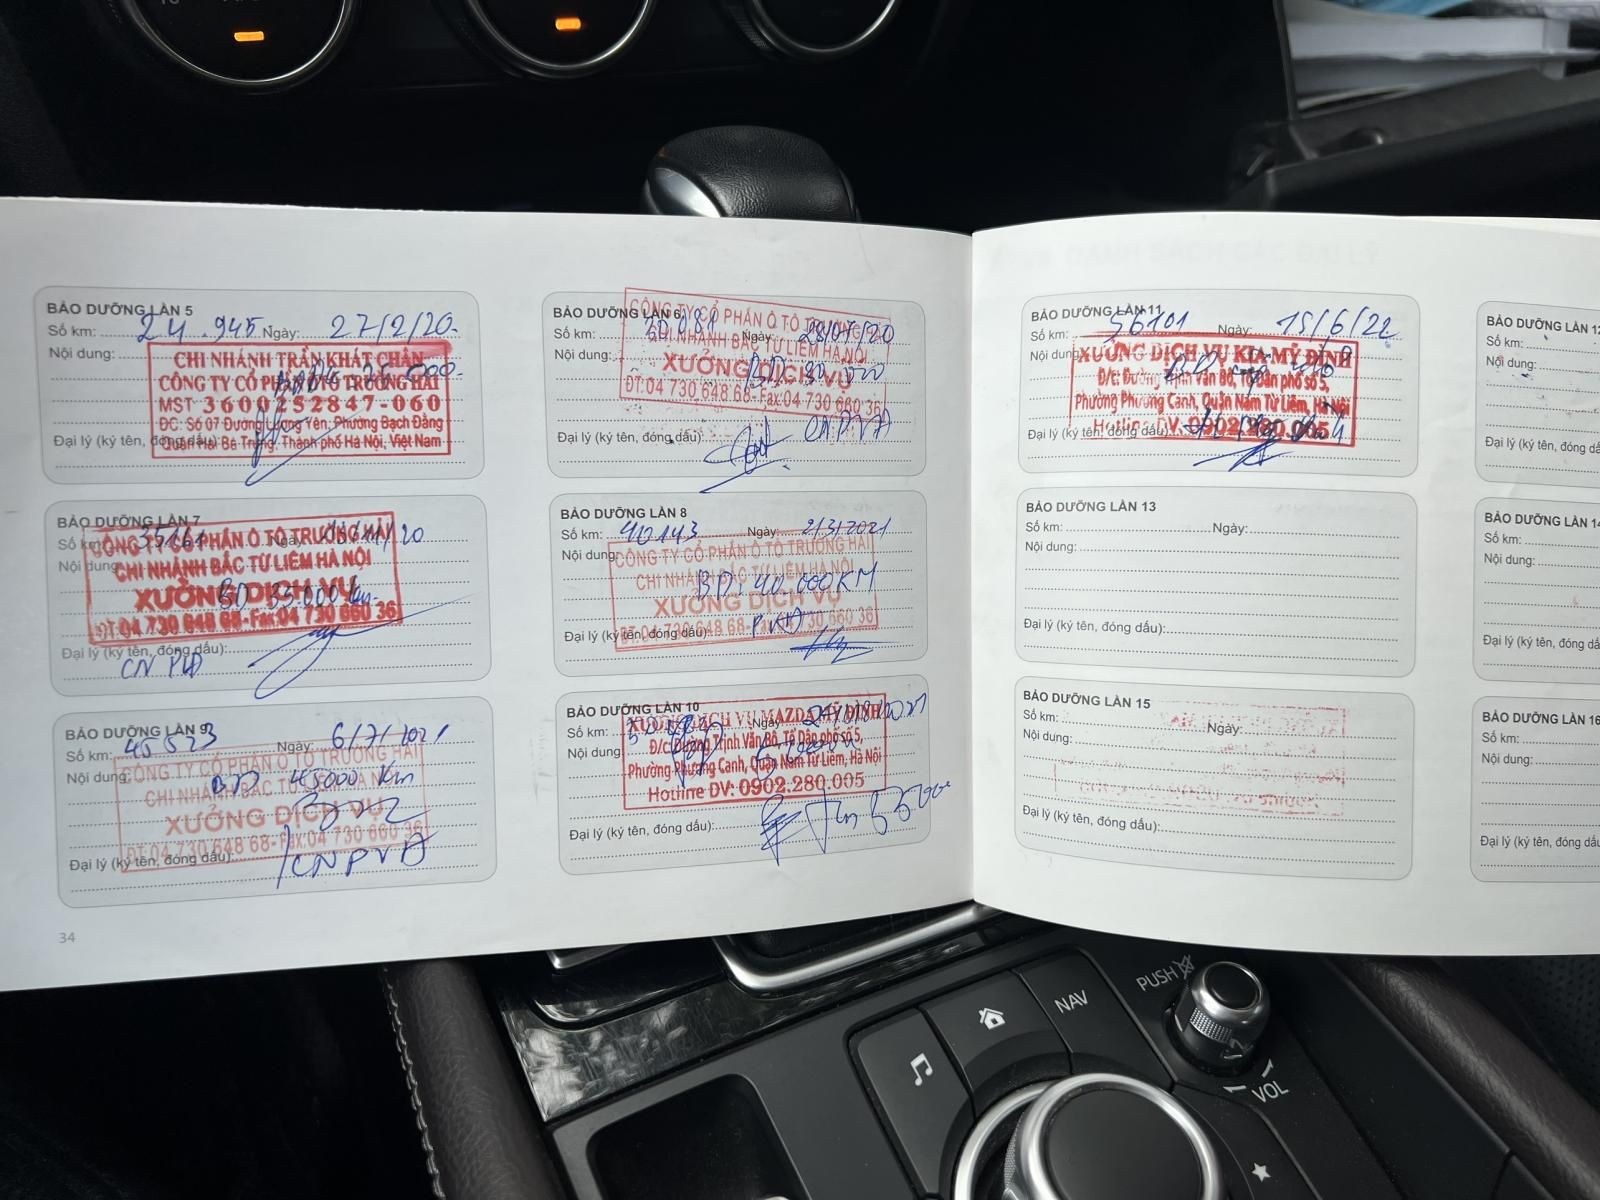 BẢO DƯỠNG LẦN 5
Số km: 24.945 Ngày: 27/2/20.
Nội dung:
CHI NHÁNH TRẦN KHÁT CHÂN
CÔNG TY CỔ PHẦN Ô TÔ TRƯỜNG HẢI
MST 3600252847-060
ĐC: Số 07 Đường Lương Yên, Phường Bạch Đằng
Quận Hai Bà Trưng, Thành phố Hà Nội, Việt Nam
Đại lý (ký tên, đóng dấu):
BẢO DƯỠNG LẦN 6
Số km: Ngày: 28/07/20
Nội dung:
CÔNG TY CỔ PHẦN Ô TÔ TRƯỜNG HẢI
CHI NHÁNH BẮC TỪ LIÊM HÀ NỘI
XƯỞNG DỊCH VỤ
ĐT:04 730 648 68-Fax:04 730 660 36
Đại lý (ký tên, đóng dấu):
CN PVĐ
BẢO DƯỠNG LẦN 7
Số km: 35161 Ngày:
Nội dung:
CÔNG TY CỔ PHẦN Ô TÔ TRƯỜNG HẢI
CHI NHÁNH BẮC TỪ LIÊM HÀ NỘI
XƯỞNG DỊCH VỤ
BD 35.000 km
ĐT:04 730 648 68-Fax:04 730 660 36
Đại lý (ký tên, đóng dấu):
CN PVĐ
BẢO DƯỠNG LẦN 8
Số km: 40143 Ngày: 2/3/2021
Nội dung:
CÔNG TY CỔ PHẦN Ô TÔ TRƯỜNG HẢI
CHI NHÁNH BẮC TỪ LIÊM HÀ NỘI
BD: 40.000KM
XƯỞNG DỊCH VỤ
ĐT:04 730 648 68-Fax:04 730 660 36
Đại lý (ký tên, đóng dấu): PVĐ
BẢO DƯỠNG LẦN 9
Số km: 45523 Ngày: 6/7/2021
Nội dung: BD 45000 Km
CÔNG TY CỔ PHẦN Ô TÔ TRƯỜNG HẢI
CHI NHÁNH BẮC TỪ LIÊM HÀ NỘI
XƯỞNG DỊCH VỤ
ĐT:04 730 648 68-Fax:04 730 660 36
Đại lý (ký tên, đóng dấu):
CNPVĐ
BẢO DƯỠNG LẦN 10
Số km: Ngày:
Nội dung
XƯỞNG DỊCH VỤ MAZDA MỸ ĐÌNH
Đ/c: Đường Trịnh Văn Bô, Tổ Dân phố số 5,
Phường Phương Canh, Quận Nam Từ Liêm, Hà Nội
Hotline DV: 0902.280.005
Đại lý (ký tên, đóng dấu):
34
BẢO DƯỠNG LẦN 11
Số km: 56101 Ngày: 15/6/22
Nội dung
XƯỞNG DỊCH VỤ KIA MỸ ĐÌNH
Đ/c: Đường Trịnh Văn Bô, Tổ Dân phố số 5,
Phường Phương Canh, Quận Nam Từ Liêm, Hà Nội
Hotline DV: 0902.280.005
Đại lý (ký tên, đóng dấu):
BẢO DƯỠNG LẦN 13
Số km: Ngày:
Nội dung:
Đại lý (ký tên, đóng dấu):
BẢO DƯỠNG LẦN 15
Số km: Ngày:
Nội dung:
Đại lý (ký tên, đóng dấu):
BẢO DƯỠNG LẦN 12
Số km:
Nội dung:
Đại lý (ký tên, đóng
BẢO DƯỠNG LẦN 14
Số km:
Nội dung:
Đại lý (ký tên, đóng
BẢO DƯỠNG LẦN 16
Số km:
Nội dung:
Đại lý (ký tên, đóng
NAV
PUSH
VOL